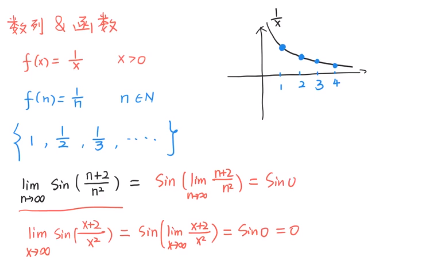 数列 & 函数
f(x) = 1/x  x>0
f(n) = 1/n  n∈N
{1, 1/2, 1/3, ····}
lim n→∞ Sin((n+2)/n²) = Sin(lim n→∞ (n+2)/n²) = Sin0
lim x→∞ Sin((x+2)/x²) = Sin(lim x→∞ (x+2)/x²) = Sin0 = 0
1/x
1 2 3 4